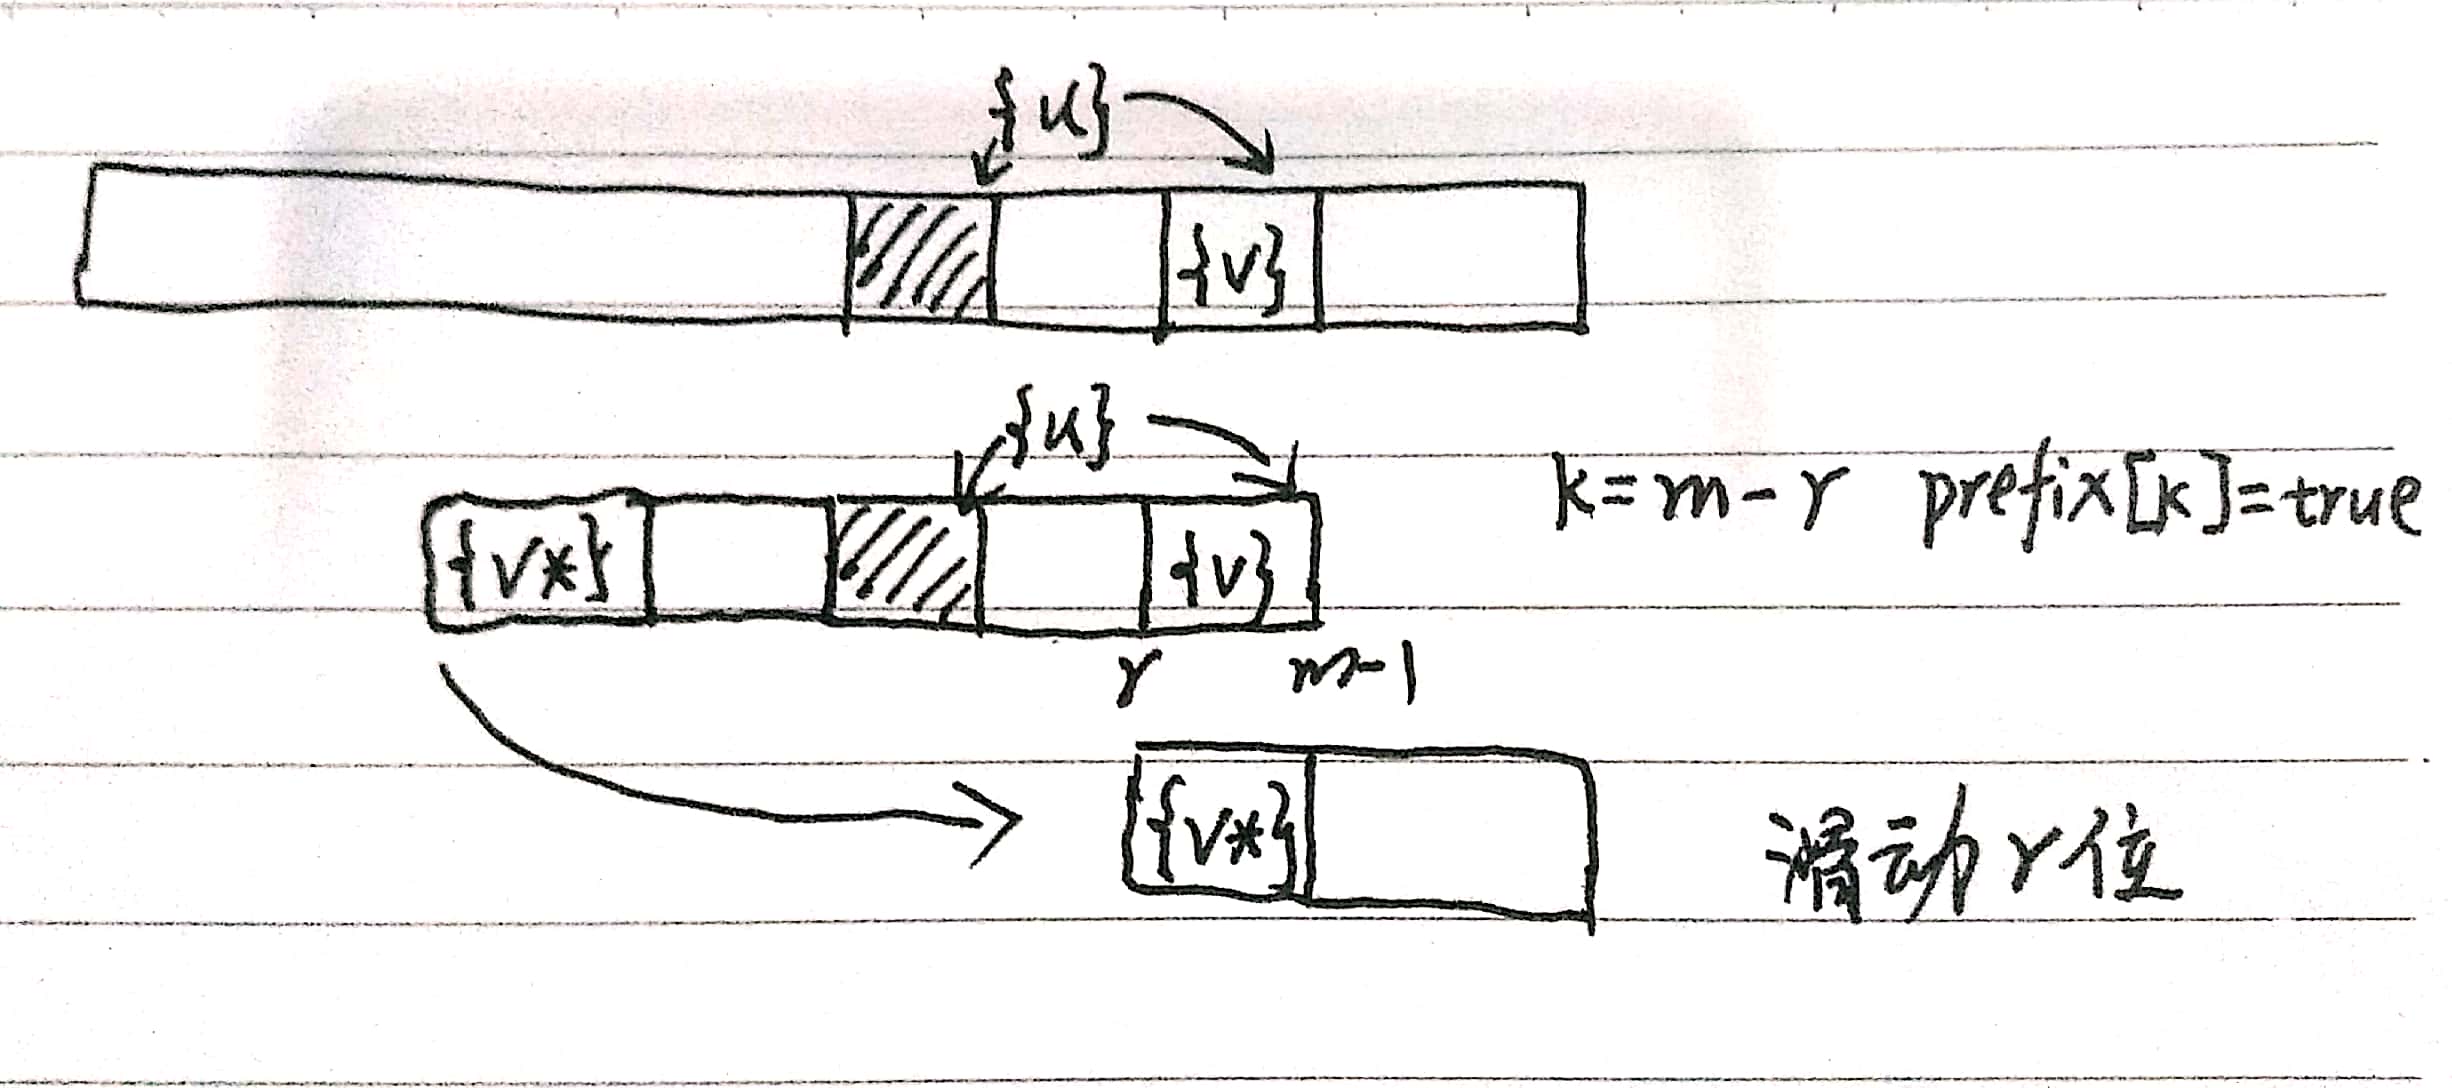 {u}
{v}
{u}
k=m-r prefix[k]=true
{v*} {v}
r m-1
{v*} 滑动r位